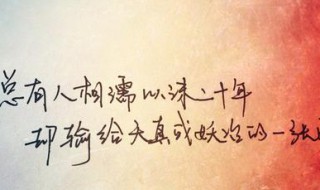 总有人相濡以沫二十年
却输给天真或妖冶的一张